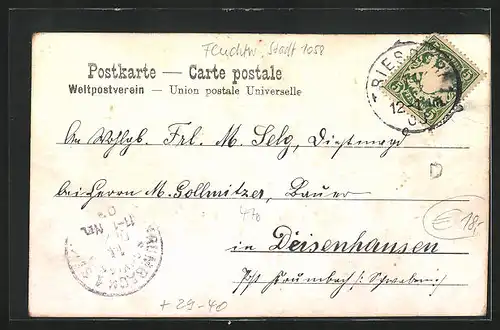 Feuchtw. Stadt 1058
Postkarte — Carte postale
Weltpostverein — Union postale Universelle
BIES
12
An Wohlgb. Frl. M. Selg, Dienstmagd
bei Herrn M. Gollmitzer, Bauer
D
470
€ 18,-
in Deisenhausen
Post Krumbach i/ Schwaben
+ 29-40